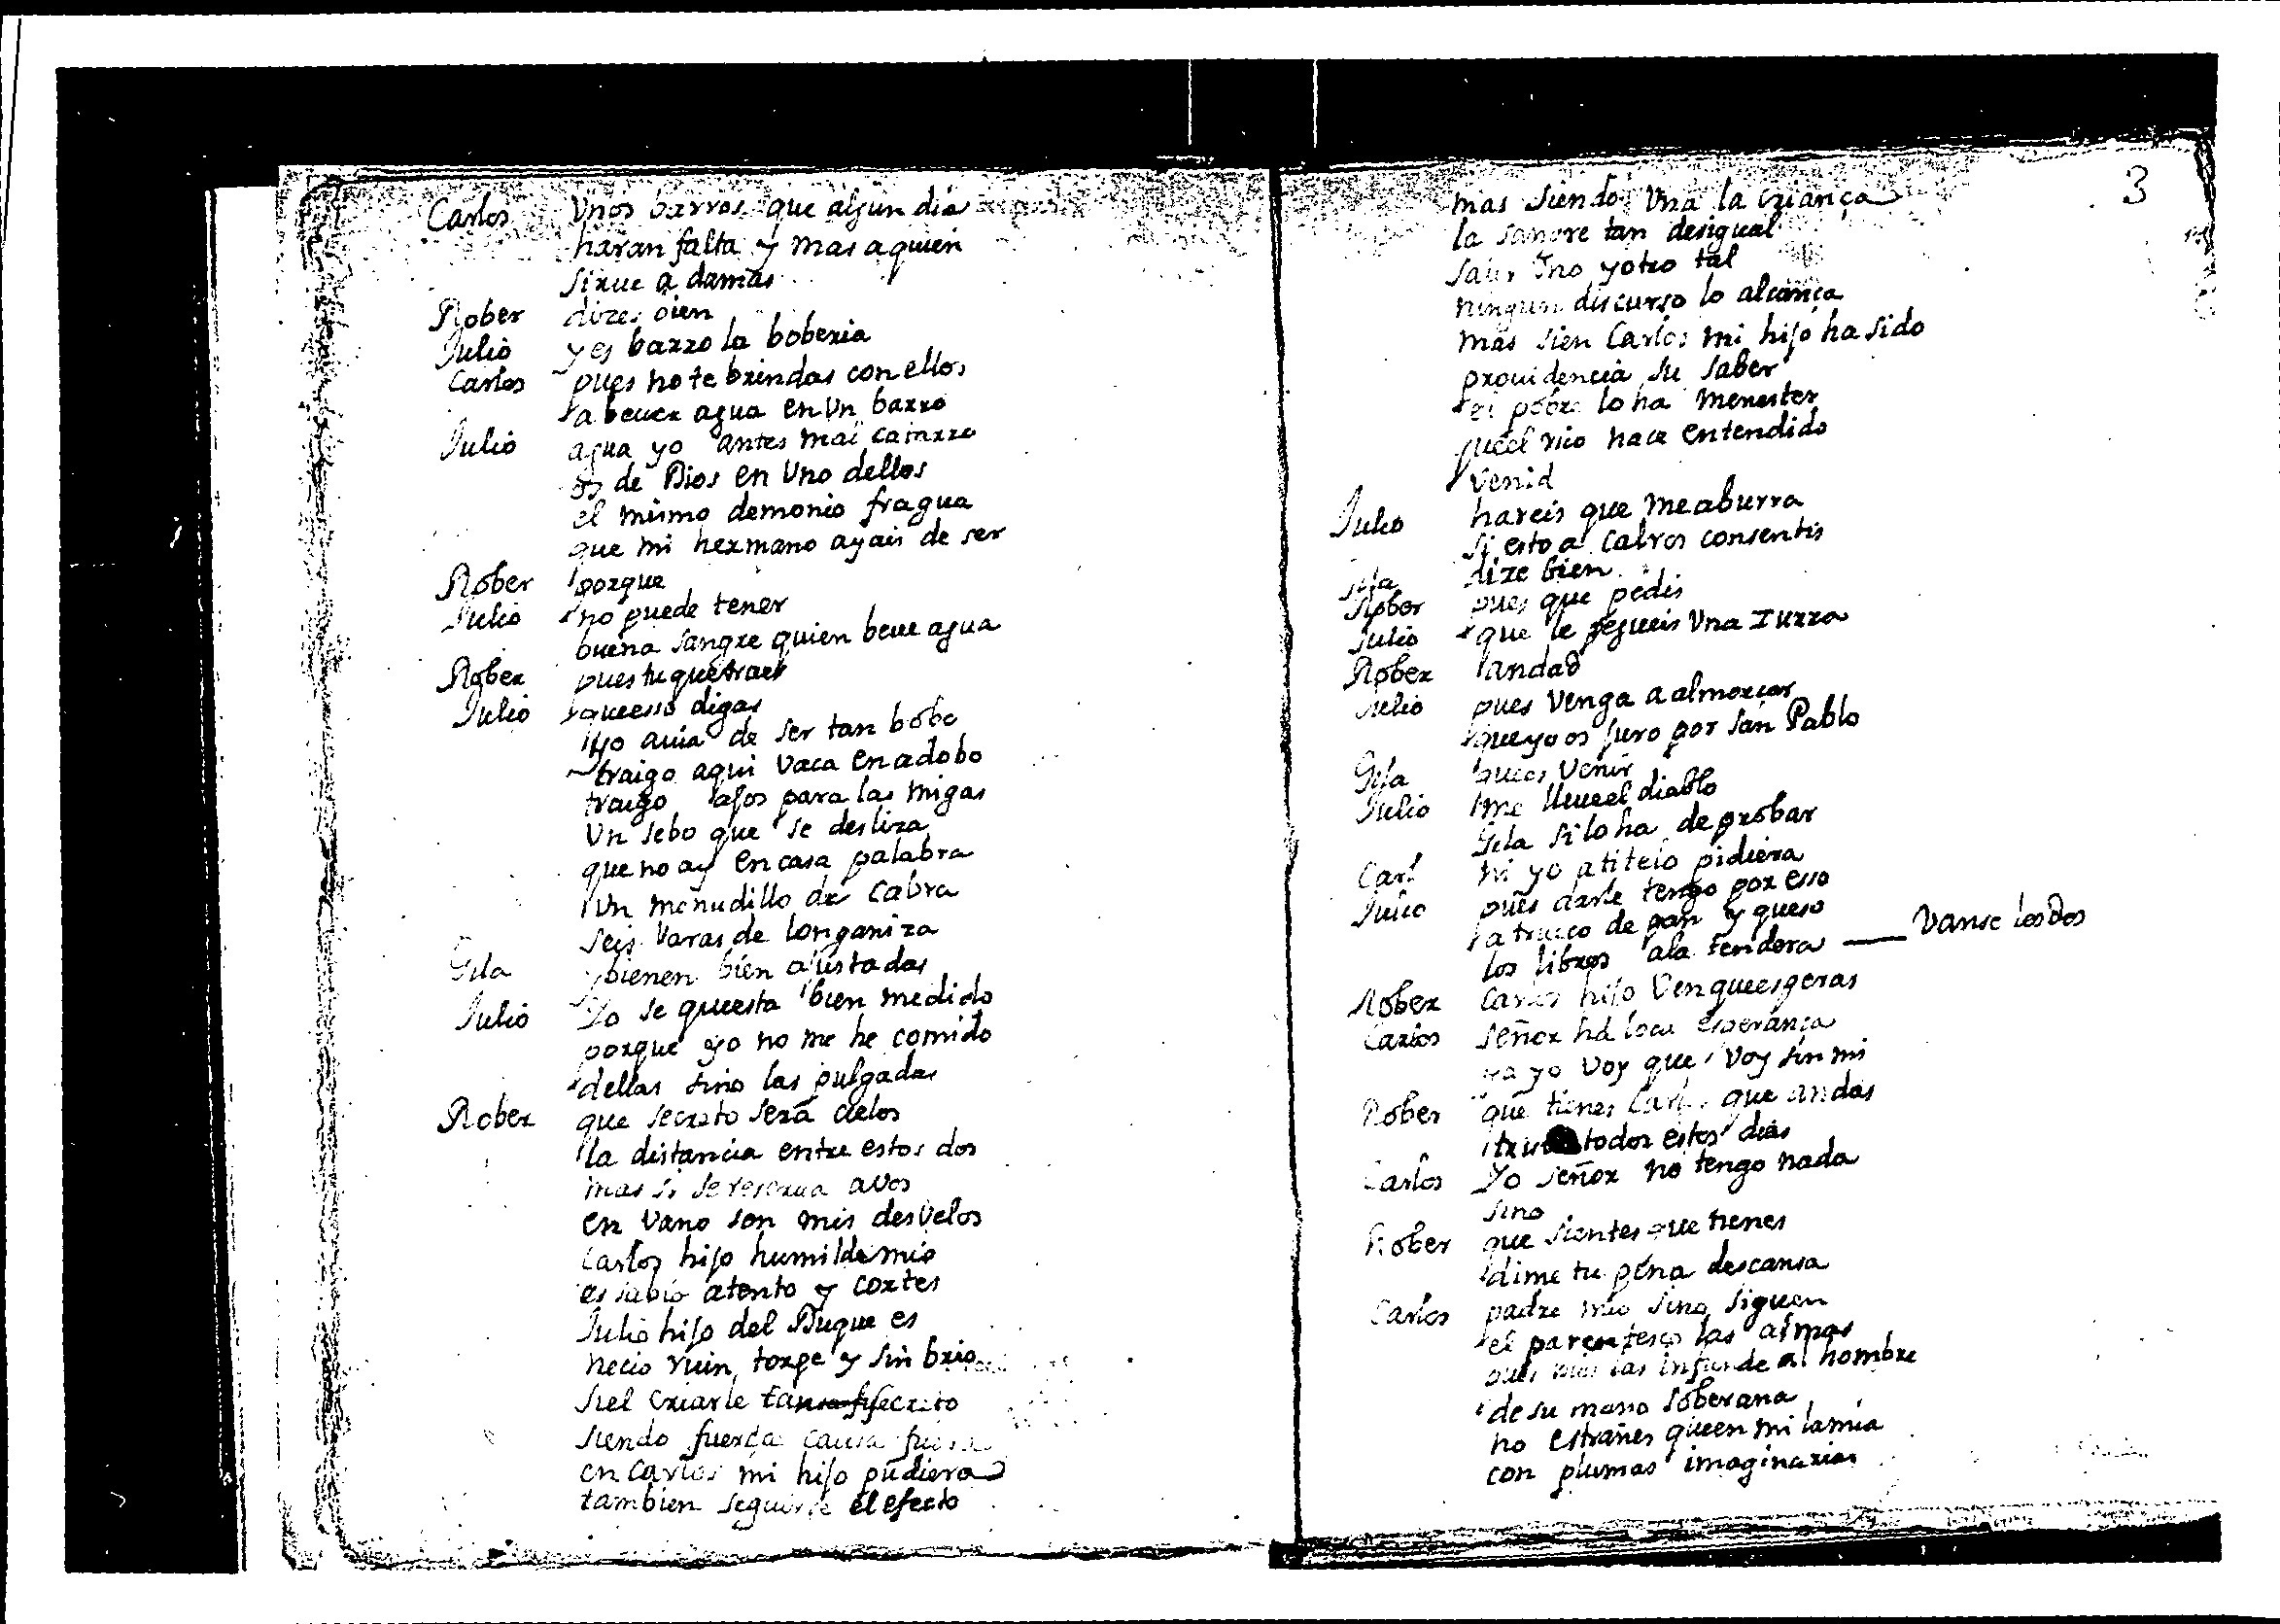 Carlos Vnos barros que algun dia
haran falta y mas a quien
sirue a damas
Rober dizes bien
Julio y es barro la boberia
Carlos pues no te brindas con ellos
a beuer agua en Vn barro
Julio agua yo antes mal catarro
os de Dios en Vno dellos
el mismo demonio fragua
que mi hermano ayais de ser
Rober porque
Julio no puede tener
buena sangre quien beue agua
Rober pues tu que traes
Julio que esso digas
yo auia de ser tan bobo
traigo aqui Vaca en adobo
traigo ajos para las migas
Vn sebo que se desliza
que no ay en casa palabra
Vn menudillo de Cabra
seis Varas de longaniza
Gila bienen bien ajustadas
Julio Yo se que esta bien medido
porque yo no me he comido
dellas sino las pulgadas
Rober que secreto sera cielos
la distancia entre estos dos
mas si se reserua a Vos
en Vano son mis desVelos
Carlos hijo humilde mio
es sabio atento y cortes
Julio hijo del Duque es
necio ruin, torpe y sin brio
si el criarle tan secreto
siendo fuerça causa fuera
en Carlos mi hijo pudiera
tambien seguirse el efecto
3
mas siendo Vna la criança
la sangre tan desigual
salir Vno y otro tal
ningun discurso lo alcança
mas si en Carlos mi hijo ha sido
prouidencia su saber
el pobre lo ha menester
que el rico nace entendido
Venid
Julio hareis que me aburra
si esto a Calros consentis
Gila dize bien
Rober pues que pedis
Julio que le pegueis Vna zurra
Rober andad
Julio pues Venga a almorçar
que yo os juro por san Pablo
Gila quees Venir
Julio me lleue el diablo
Gila si lo ha de probar
Carl ni yo a ti te lo pidiera
Julio pues darle tengo por esso
a trueco de pan y queso
los libros a la tendera ___ Vanse los Dos
Rober Carlos hijo Ven que esperas
Carlos señor ha loca esperança
ya yo Voy que Voy sin mi
Rober que tienes Carlos que andas
todos estos dias
Carlos Yo señor no tengo nada
sino
Rober que sientes que tienes
dime tu pena descansa
Carlos padre mio sino siguen
el parentesco las almas
pues las infunde al hombre
de su mano soberana
no estrañes que en mi la mia
con plumas imaginarias